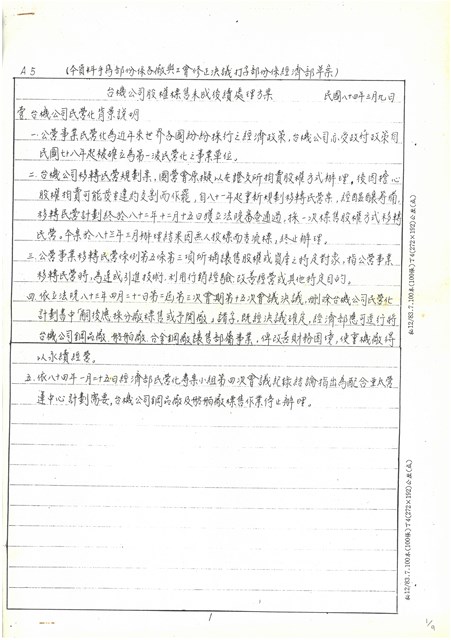 A5 (今資料手寫部份係各廠與工會修正決議,打字部份係經濟部草案)
台機公司股權標售未成後續處理方案 民國八十四年三月九日
壹、台機公司民營化背景說明
一、公營事業民營化為近年來世界各國紛紛採行之經濟政策,台機公司亦交政府政策自
民國七十八年起被確立為第一波民營化之事業單位。
二、台機公司移轉民營規劃案,國營會原擬以
股權相賣可能發生違約交割而作罷,自八十一年起重新規劃移轉民營案,經
移轉民營計劃終於八十二年十二月十五日獲立法院審查通過,採一次標售股權方式移轉
民營。本案於八十三年三月辦理結果因無人投標而告流標,終止辦理。
三、公營事業移轉民營條例第五條第三項所稱讓售股權或資產之特定對象,指公營事業
移轉民營時,為達成引進技術、利用行銷經驗、改善經營或其他特定目的。
四、依立法院八十三年四月二十一日第二屆第三次會期第十五次會議決議,刪除台機公司民營化
計劃書中「嗣後應採分廠標售或予關廠」辭子,既經決議確定,經濟部應可進行將
台機公司鋼品廠、船舶廠、合金鋼廠讓售部份事業,俾改善財務困境,使重機廠得
以永續經營。
五、依八十四年一月二十五日經濟部民營化專案小組第四次會議紀錄結論指出為配合亞太營
運中心計劃需要,台機公司鋼品廠及船舶廠標售作業停止辦理。
1
1/9